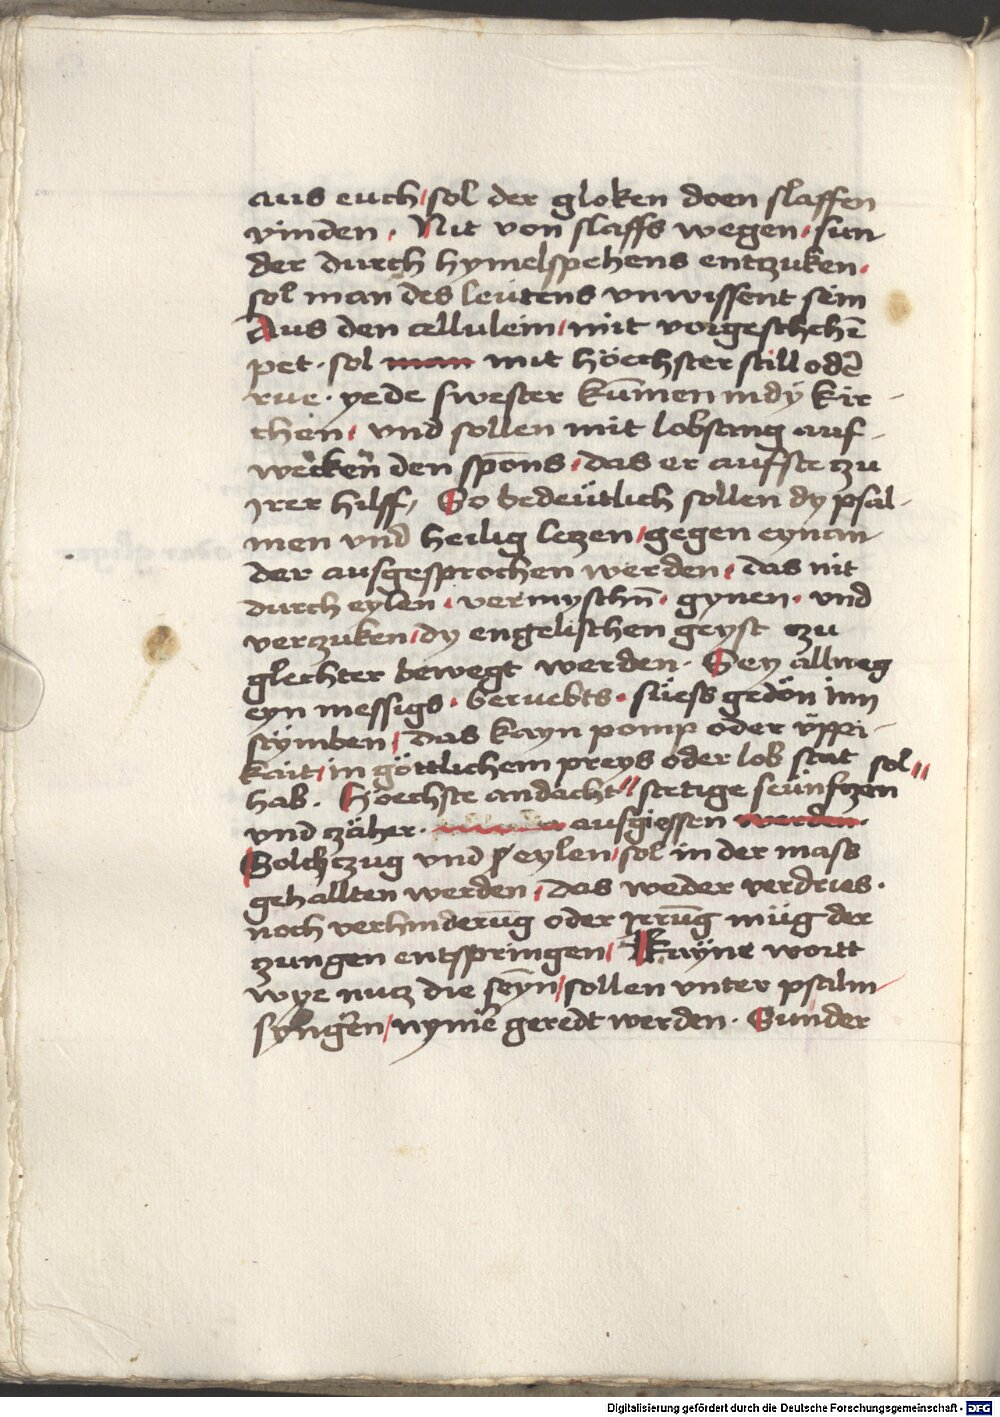 aus euch / sol der gloken doen slaffen
vinden · Nit von slaffs wegen · sun
der durch hymelspehens entzuken ·
sol man des leütens vnwissent sein
Aus den cellulein / mit vorgeschehē
pet · sol man mit höechster still odē
rue · yede swester kūmen in dy kir-
chen / vnd sollen mit lobsang auf-
wecken den spons · das er aufste zu
irer hilff / So bedeütlich sollen dy psal-
men vnd heilig lezen / gegen eynan
der ausgesprochen werden / das nit
durch eylen · vermyschn̄ · gynen · vnd
verzuken / dy engelischen geyst zu
glechter bewegt werden · Sey allweg
eyn messigs · beruebts · süess gedön inn
stymben / das kayn pomp oder üppi-
kait / in göttlichem preys oder lob stat
hab · Höechste andacht " stetige seünfzen sol "
vnd zäher · ausgiessen werden ·
Solch zug vnd eylen / sol in der mass
gehallten werden / das weder verdries ·
noch verhinderūg oder irrūg müg der
zungen entspringen / Kayne wortt
wye nuz die seyn / sollen vnter psalm
syngen / nymē geredt werden · Sunder
Digitalisierung gefördert durch die Deutsche Forschungsgemeinschaft - DFG